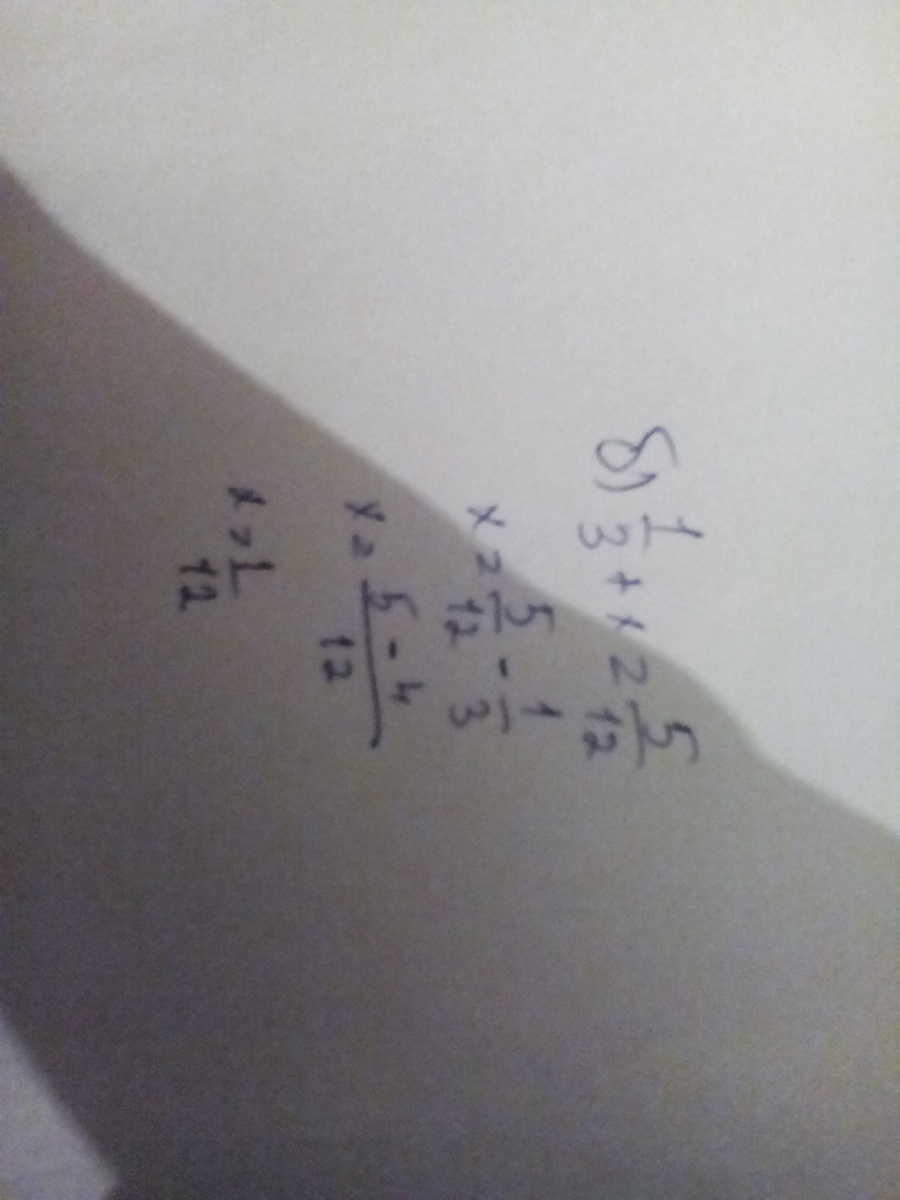 б) 1/3 + x = 5/12
x = 5/12 - 1/3
x = (5 - 4)/12
x = 1/12